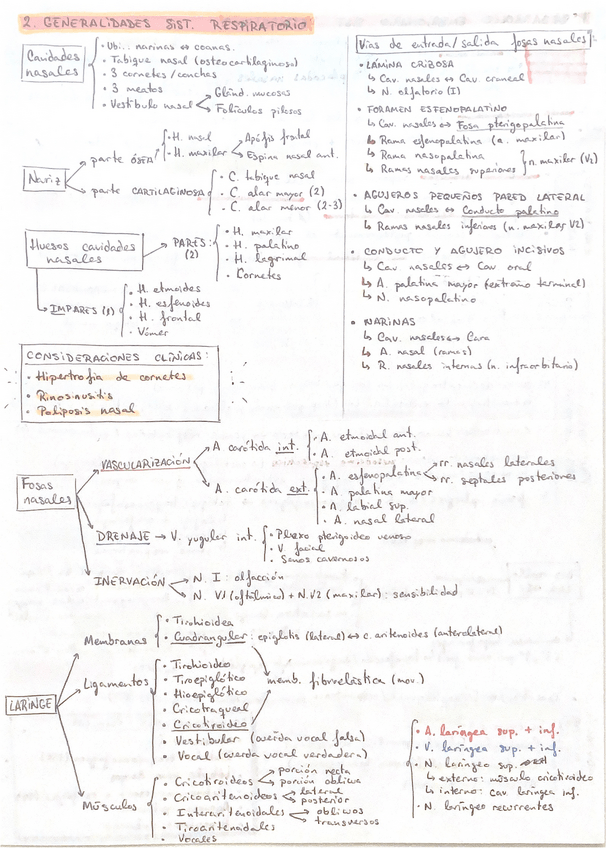 2. GENERALIDADES SIST. RESPIRATORIO
Cavidades nasales
• Ubi.: narinas ↔ coanas.
• Tabique nasal (osteocartilaginoso)
• 3 cornetes/conchas
• 3 meatos
• Vestíbulo nasal
Gland. mucosas
Folículos pilosos
Nariz
parte ÓSEA
• H. nasal
• H. maxilar
Apófis frontal
Espina nasal ant.
parte CARTILAGINOSA
• C. tabique nasal
• C. alar mayor (2)
• C. alar menor (2-3)
Huesos cavidades nasales
PARES: (2)
• H. maxilar
• H. palatino
• H. lagrimal
• Cornetes
IMPARES (1)
• H. etmoides
• H. esfenoides
• H. frontal
• Vómer
CONSIDERACIONES CLÍNICAS:
• Hipertrofia de cornetes
• Rinosinusitis
• Poliposis nasal
Vías de entrada/salida fosas nasales:
• LÁMINA CRIBOSA
↳ Cav. nasales ↔ Cav. craneal
↳ N. olfatorio (I)
• FORAMEN ESFENOPALATINO
↳ Cav. nasales ↔ Fosa pterigopalatina
↳ Rama esfenopalatina (a. maxilar)
↳ Rama nasopalatina
↳ Ramas nasales superiores
n. maxilar (V2)
• AGUJEROS PEQUEÑOS PARED LATERAL
↳ Cav. nasales ↔ Conducto palatino
↳ Ramas nasales inferiores (n. maxilar V2)
• CONDUCTO Y AGUJERO INCISIVOS
↳ Cav nasales ↔ Cav oral
↳ A. palatina mayor (extremo terminal)
↳ N. nasopalatino
• NARINAS
↳ Cav. nasales ↔ Cara
↳ A. nasal (ramas)
↳ R. nasales internas (n. infraorbitario)
Fosas nasales
VASCULARIZACIÓN
A carótida int.
• A. etmoidal ant.
• A. etmoidal post.
A. carótida ext.
• A. esfenopalatina
rr. nasales laterales
rr. septales posteriores
• A palatina mayor
• A. labial sup.
• A. nasal lateral
DRENAJE → V. yugular int.
• Plexo pterigoideo venoso
• V. facial
• Senos cavernosos
INERVACIÓN
N. I: olfacción
N. V1 (oftálmico) + N.V2 (maxilar): sensibilidad
LARINGE
Membranas
• Tirohioidea
• Cuadrangular: epiglotis (lateral) ↔ c. aritenoides (anterolateral)
Ligamentos
• Tirohioideo
• Tiroepiglótico
• Hioepiglótico
• Cricotraqueal
• Cricotiroideo
• Vestibular (cuerda vocal falsa)
• Vocal (cuerda vocal verdadera)
memb. fibroelástica (mov.)
Músculos
• Cricotiroideos
porción recta
porción oblicua
• Cricoaritenoideos
lateral
posterior
• Interaritenoidales
oblicuos
transversos
• Tiroaritenoidales
• Vocales
• A. laríngea sup. + inf.
• V. laríngea sup. + inf.
• N. laríngeo sup.
↳ externo: músculo cricotiroideo
↳ interno: cav. laríngea inf.
• N. laríngeo recurrentes